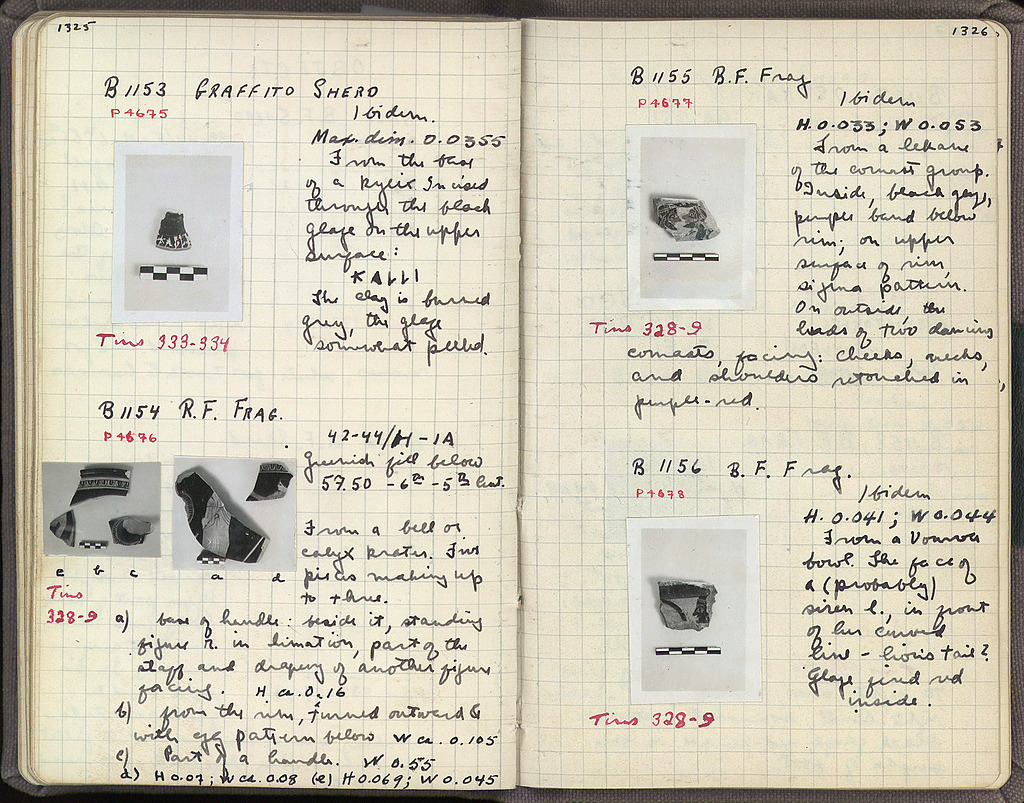 1325
B 1153 GRAFFITO SHERD
P 4675
Ibidem.
Max. dim. 0.0355
From the base
of a kylix. Incised
through the black
glaze on the upper
surface:
ΚΑLLI
The clay is burned
grey, the glaze
somewhat peeled.
Tins 333-334
B 1154 R.F. FRAG.
P 4676
42-44/H-IA
Greenish fill below
57.50 - 6th - 5th Cent.
From a bell or
calyx krater. Five
pieces making up
to three.
e b c a d
Tins
328-9
a) base of handle: beside it, standing
figure r. in himation, part of the
staff and drapery of another figure
facing. H ca. 0.16
b) from the rim, turned outward &
with egg pattern below W ca. 0.105
c) Part of a handle. W 0.55
d) H 0.07; W ca. 0.08 (e) H 0.069; W 0.045
1326
B 1155 B.F. Frag
P 4677
Ibidem
H. 0.033; W 0.053
From a lekane
of the comast group.
Inside, black glaze,
purple band below
rim; on upper
surface of rim,
sigma pattern.
On outside, the
heads of two dancing
Tins 328-9
comasts, facing: cheeks, necks,
and shoulders retouched in
purple-red.
B 1156 B.F. Frag.
P 4678
Ibidem
H. 0.041; W 0.044
From a Vourva
bowl. The face of
a (probably)
siren l., in front
of her curved
line - lion's tail?
Glaze fired red
inside.
Tins 328-9